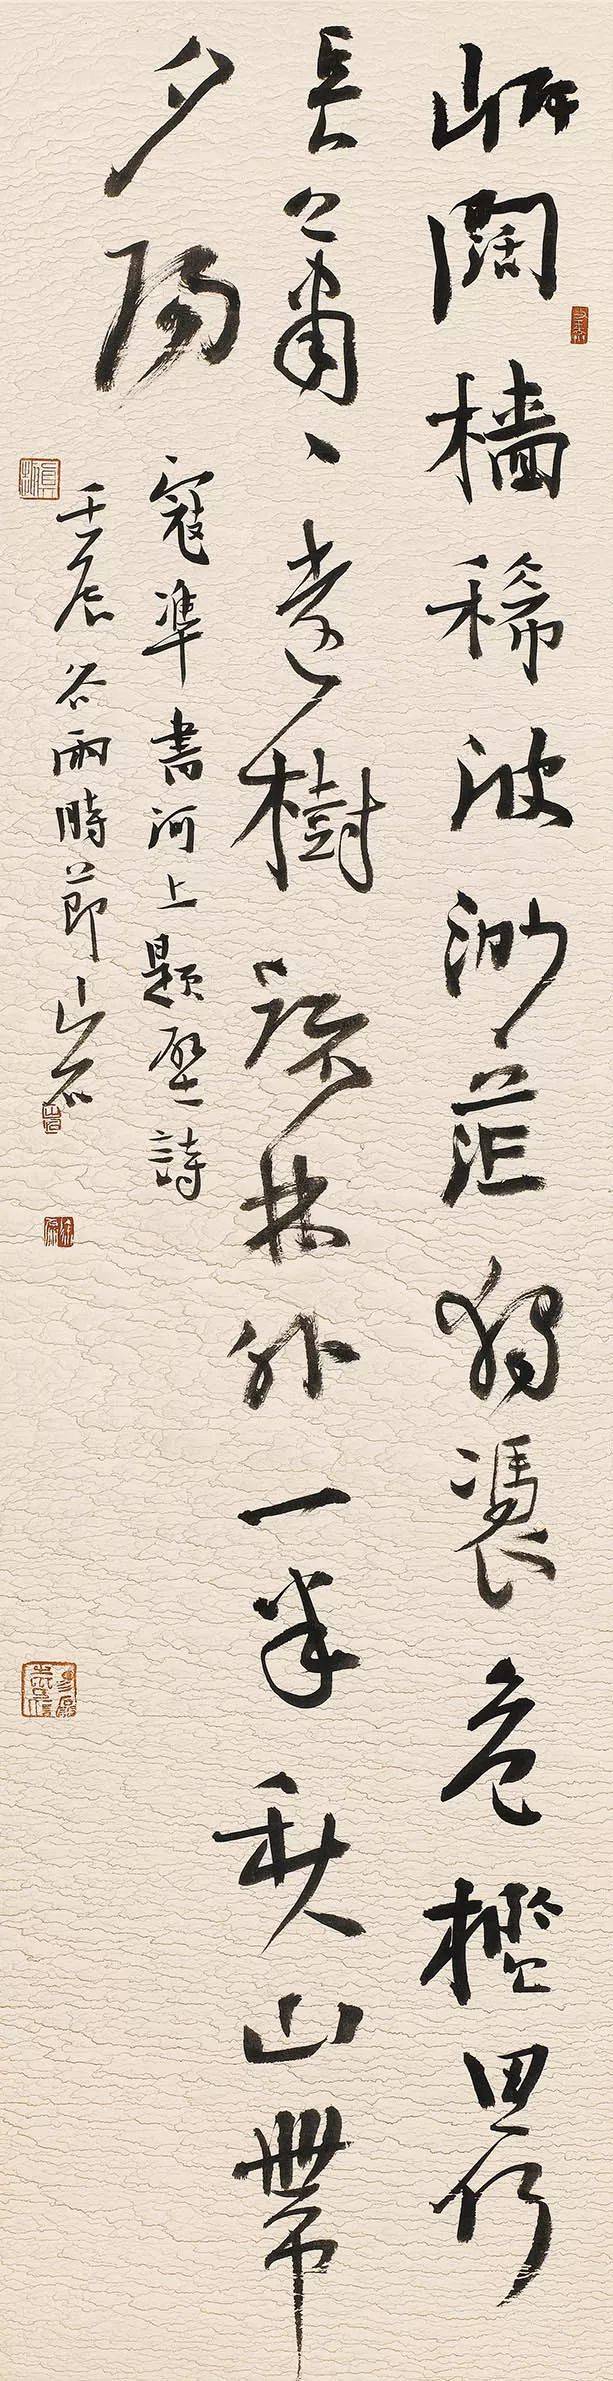 岸闊檣稀波渺茫獨憑危檻思何
長蕭〻遠樹疏林外一半秋山帶
夕陽
寇準書河上題壁詩
壬辰谷雨時節山石